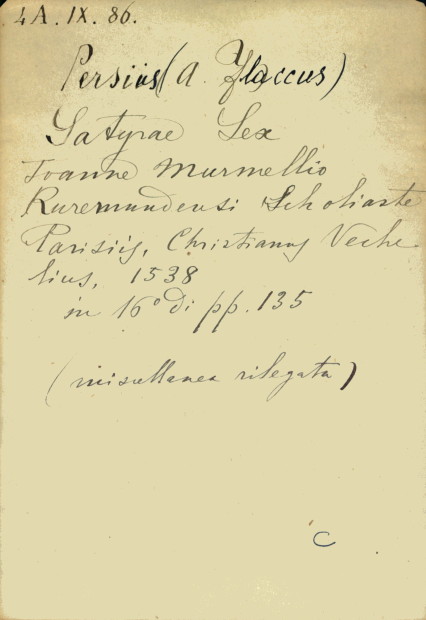 4A. IX. 86.
Persius (A. Flaccus)
Satyrae Sex
Joanne Murmellio
Ruremundensi Scholiaste
Parisiis, Christianus Veche
lius, 1538
in 16° di pp. 135
(miscellanea rilegata)
C